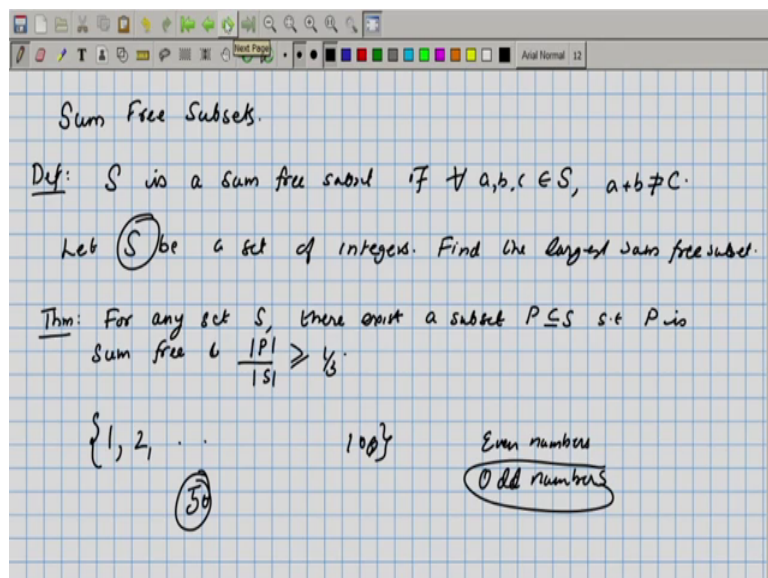 Next Page
T
Arial Normal 12
Sum Free Subsets.
Def: S is a sum free subset if ∀ a,b,c ∈ S, a+b ≠ c.
Let S be a set of integers. Find the largest sum free subset.
Thm: For any set S, there exist a subset P ⊆ S s.t P is
sum free & |P|/|S| ⩾ 1/3.
{1, 2, .. 100}
Even numbers
Odd numbers
50